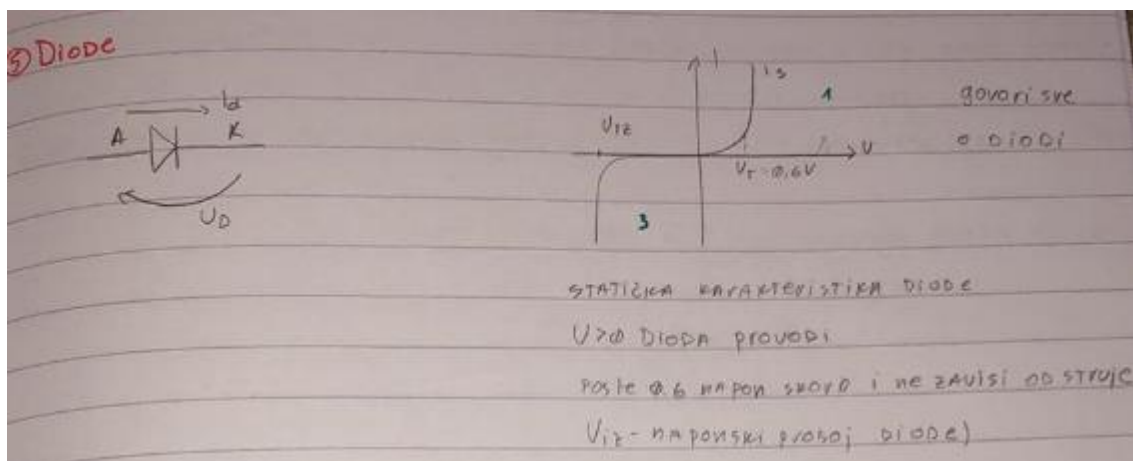 5 Diode
Id
A K
UD
I
Is
1
Uiz
U
UT=0,6V
3
govori sve
o diodi
STATIČKA KARAKTERISTIKA DIODE
U>0 DIODA PROVODI
POSLE 0.6 NAPON SKORO i NE ZAVISI OD STRUJE
Uiz - NAPONSKI PROBOJ DIODE)